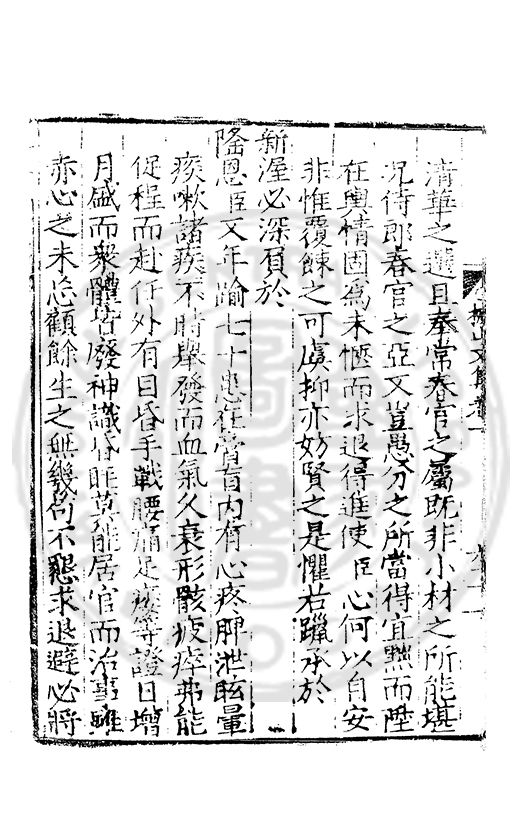 清華之選且奉常春官之屬既非小材之所能堪
况侍郎春官之亞又豈愚分之所當得宜黜而陞
在輿情固為未愜而求退得進使臣心何以自安
非惟覆餗之可虞抑亦妨賢之是懼若躐承於
新渥必深負於
隆恩臣又年踰七十患在膏肓内有心疼脾泄眩暈
痰嗽諸疾不時舉發而血氣久衰形骸疲瘁弗能
促程而赴任外有目昏手戰腰痛足痠等證日增
月盛而衆體皆廢神識昏眊莫能居官而治事雖
赤心之未忘顧餘生之無幾苟不懇求退避必將